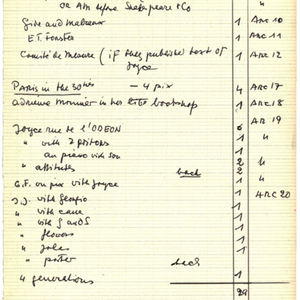 or AM before Shakespeare & Co
Gide and Malraux 1 ARC 10
E.T. Forster 1 ARC 11
Comité de Mesure (if they publish text of 1 ARC 12
Joyce
Paris in the 30ties — 4 pix 4 ARC 17
Adrienne Monnier in her bookshop 1 ARC 18
AR 19
Joyce rue de l'ODEON 6 "
" with 2 1
au piano with son 1
" attitudes back 2 "
G.F. on pix with Joyce 1
J.J. with Giorgio 1 ARC 20
" with cane 1
" with G and S 1
" flowers 1
" 1
" back
4 generations 1
29